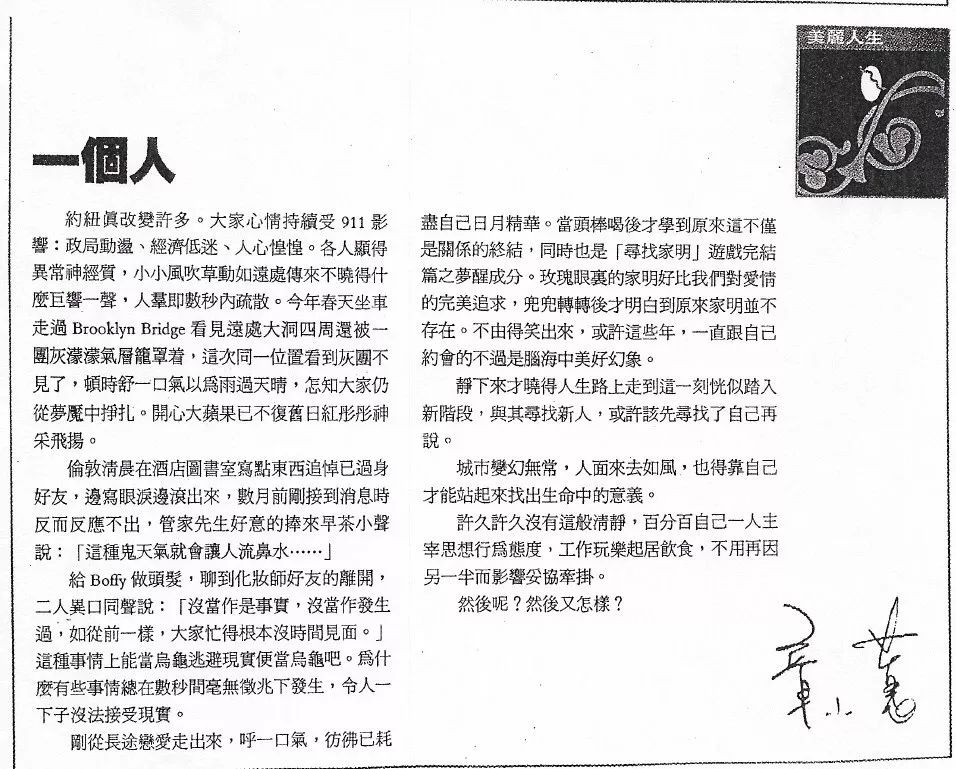 美麗人生
一個人
約紐眞改變許多。大家心情持續受 911 影
響：政局動盪、經濟低迷、人心惶惶。各人顯得
異常神經質，小小風吹草動如遠處傳來不曉得什
麼巨響一聲，人羣即數秒內疏散。今年春天坐車
走過 Brooklyn Bridge 看見遠處大洞四周還被一
團灰濛濛氣層籠罩着，這次同一位置看到灰團不
見了，頓時舒一口氣以爲雨過天晴，怎知大家仍
從夢魘中掙扎。開心大蘋果已不復舊日紅彤彤神
采飛揚。
倫敦淸晨在酒店圖書室寫點東西追悼已過身
好友，邊寫眼淚邊滾出來，數月前剛接到消息時
反而反應不出，管家先生好意的捧來早茶小聲
說：「這種鬼天氣就會讓人流鼻水……」
給 Boffy 做頭髮，聊到化妝師好友的離開，
二人異口同聲說：「沒當作是事實，沒當作發生
過，如從前一樣，大家忙得根本沒時間見面。」
這種事情上能當烏龜逃避現實便當烏龜吧。爲什
麼有些事情總在數秒間毫無徵兆下發生，令人一
下子沒法接受現實。
剛從長途戀愛走出來，呼一口氣，彷彿已耗
盡自己日月精華。當頭棒喝後才學到原來這不僅
是關係的終結，同時也是「尋找家明」遊戲完結
篇之夢醒成分。玫瑰眼裏的家明好比我們對愛情
的完美追求，兜兜轉轉後才明白到原來家明並不
存在。不由得笑出來，或許這些年，一直跟自己
約會的不過是腦海中美好幻象。
靜下來才曉得人生路上走到這一刻恍似踏入
新階段，與其尋找新人，或許該先尋找了自己再
說。
城市變幻無常，人面來去如風，也得靠自己
才能站起來找出生命中的意義。
許久許久沒有這般淸靜，百分百自己一人主
宰思想行爲態度，工作玩樂起居飲食，不用再因
另一半而影響妥協牽掛。
然後呢？然後又怎樣？
章小蕙